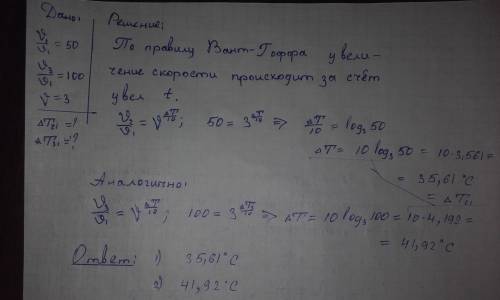 Дано:
ϑ₂/ϑ₁ = 50
ϑ₃/ϑ₁ = 100
γ = 3
ΔT₂₁ = ?
ΔT₃₁ = ?
Решение:
По правилу Вант-Гоффа увели-
чение скорости происходит за счёт
увел t.
ϑ₂/ϑ₁ = γ^(ΔT/10); 50 = 3^(ΔT/10) => ΔT/10 = log₃50
ΔT = 10 log₃50 = 10·3,561 =
= 35,61°C
= ΔT₂₁
Аналогично:
ϑ₃/ϑ₁ = γ^(ΔT/10); 100 = 3^(ΔT/10) => ΔT = 10 log₃100 = 10·4,192 =
= 41,92°C
Ответ: 1) 35,61°C
2) 41,92°C